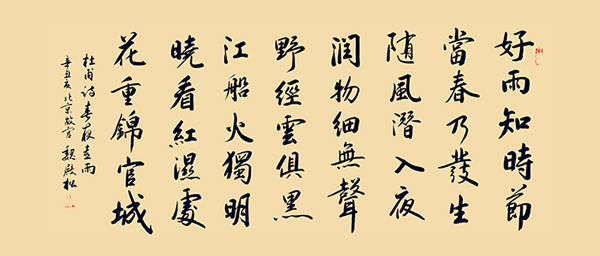 好雨知時節
當春乃發生
随風潛入夜
潤物細無聲
野經雲俱黑
江船火獨明
曉看紅濕處
花重錦官城
杜甫詩春夜喜雨
辛丑夏北京故宮 魏殿松